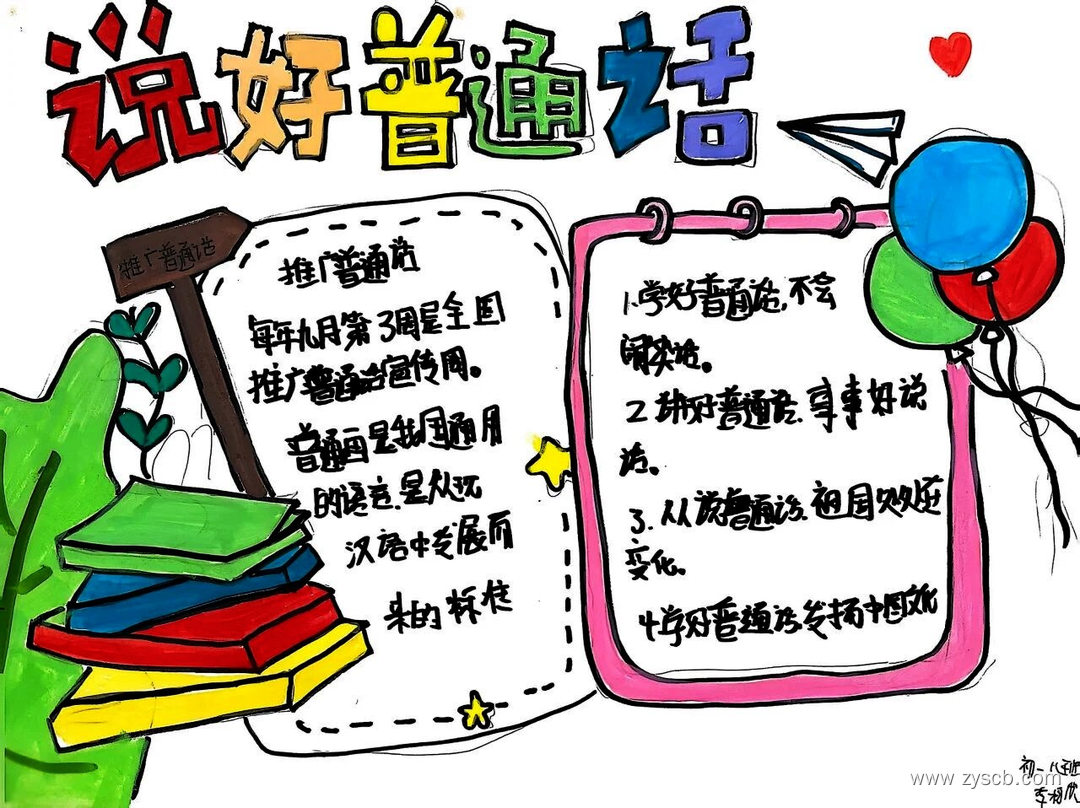 说好普通话
推广普通话
推广普通话
每年九月第3周是全国
推广普通话宣传周。
普通画是我国通用
的语言,是从现
汉语中发展而
来的标准
1.学好普通话,不会
闹笑话。
2 讲好普通话,事事好说
话。
3.人人说普通话,祖国处处在
变化。
4学好普通话,发扬中国文化
初一八班
www.zyscb.com